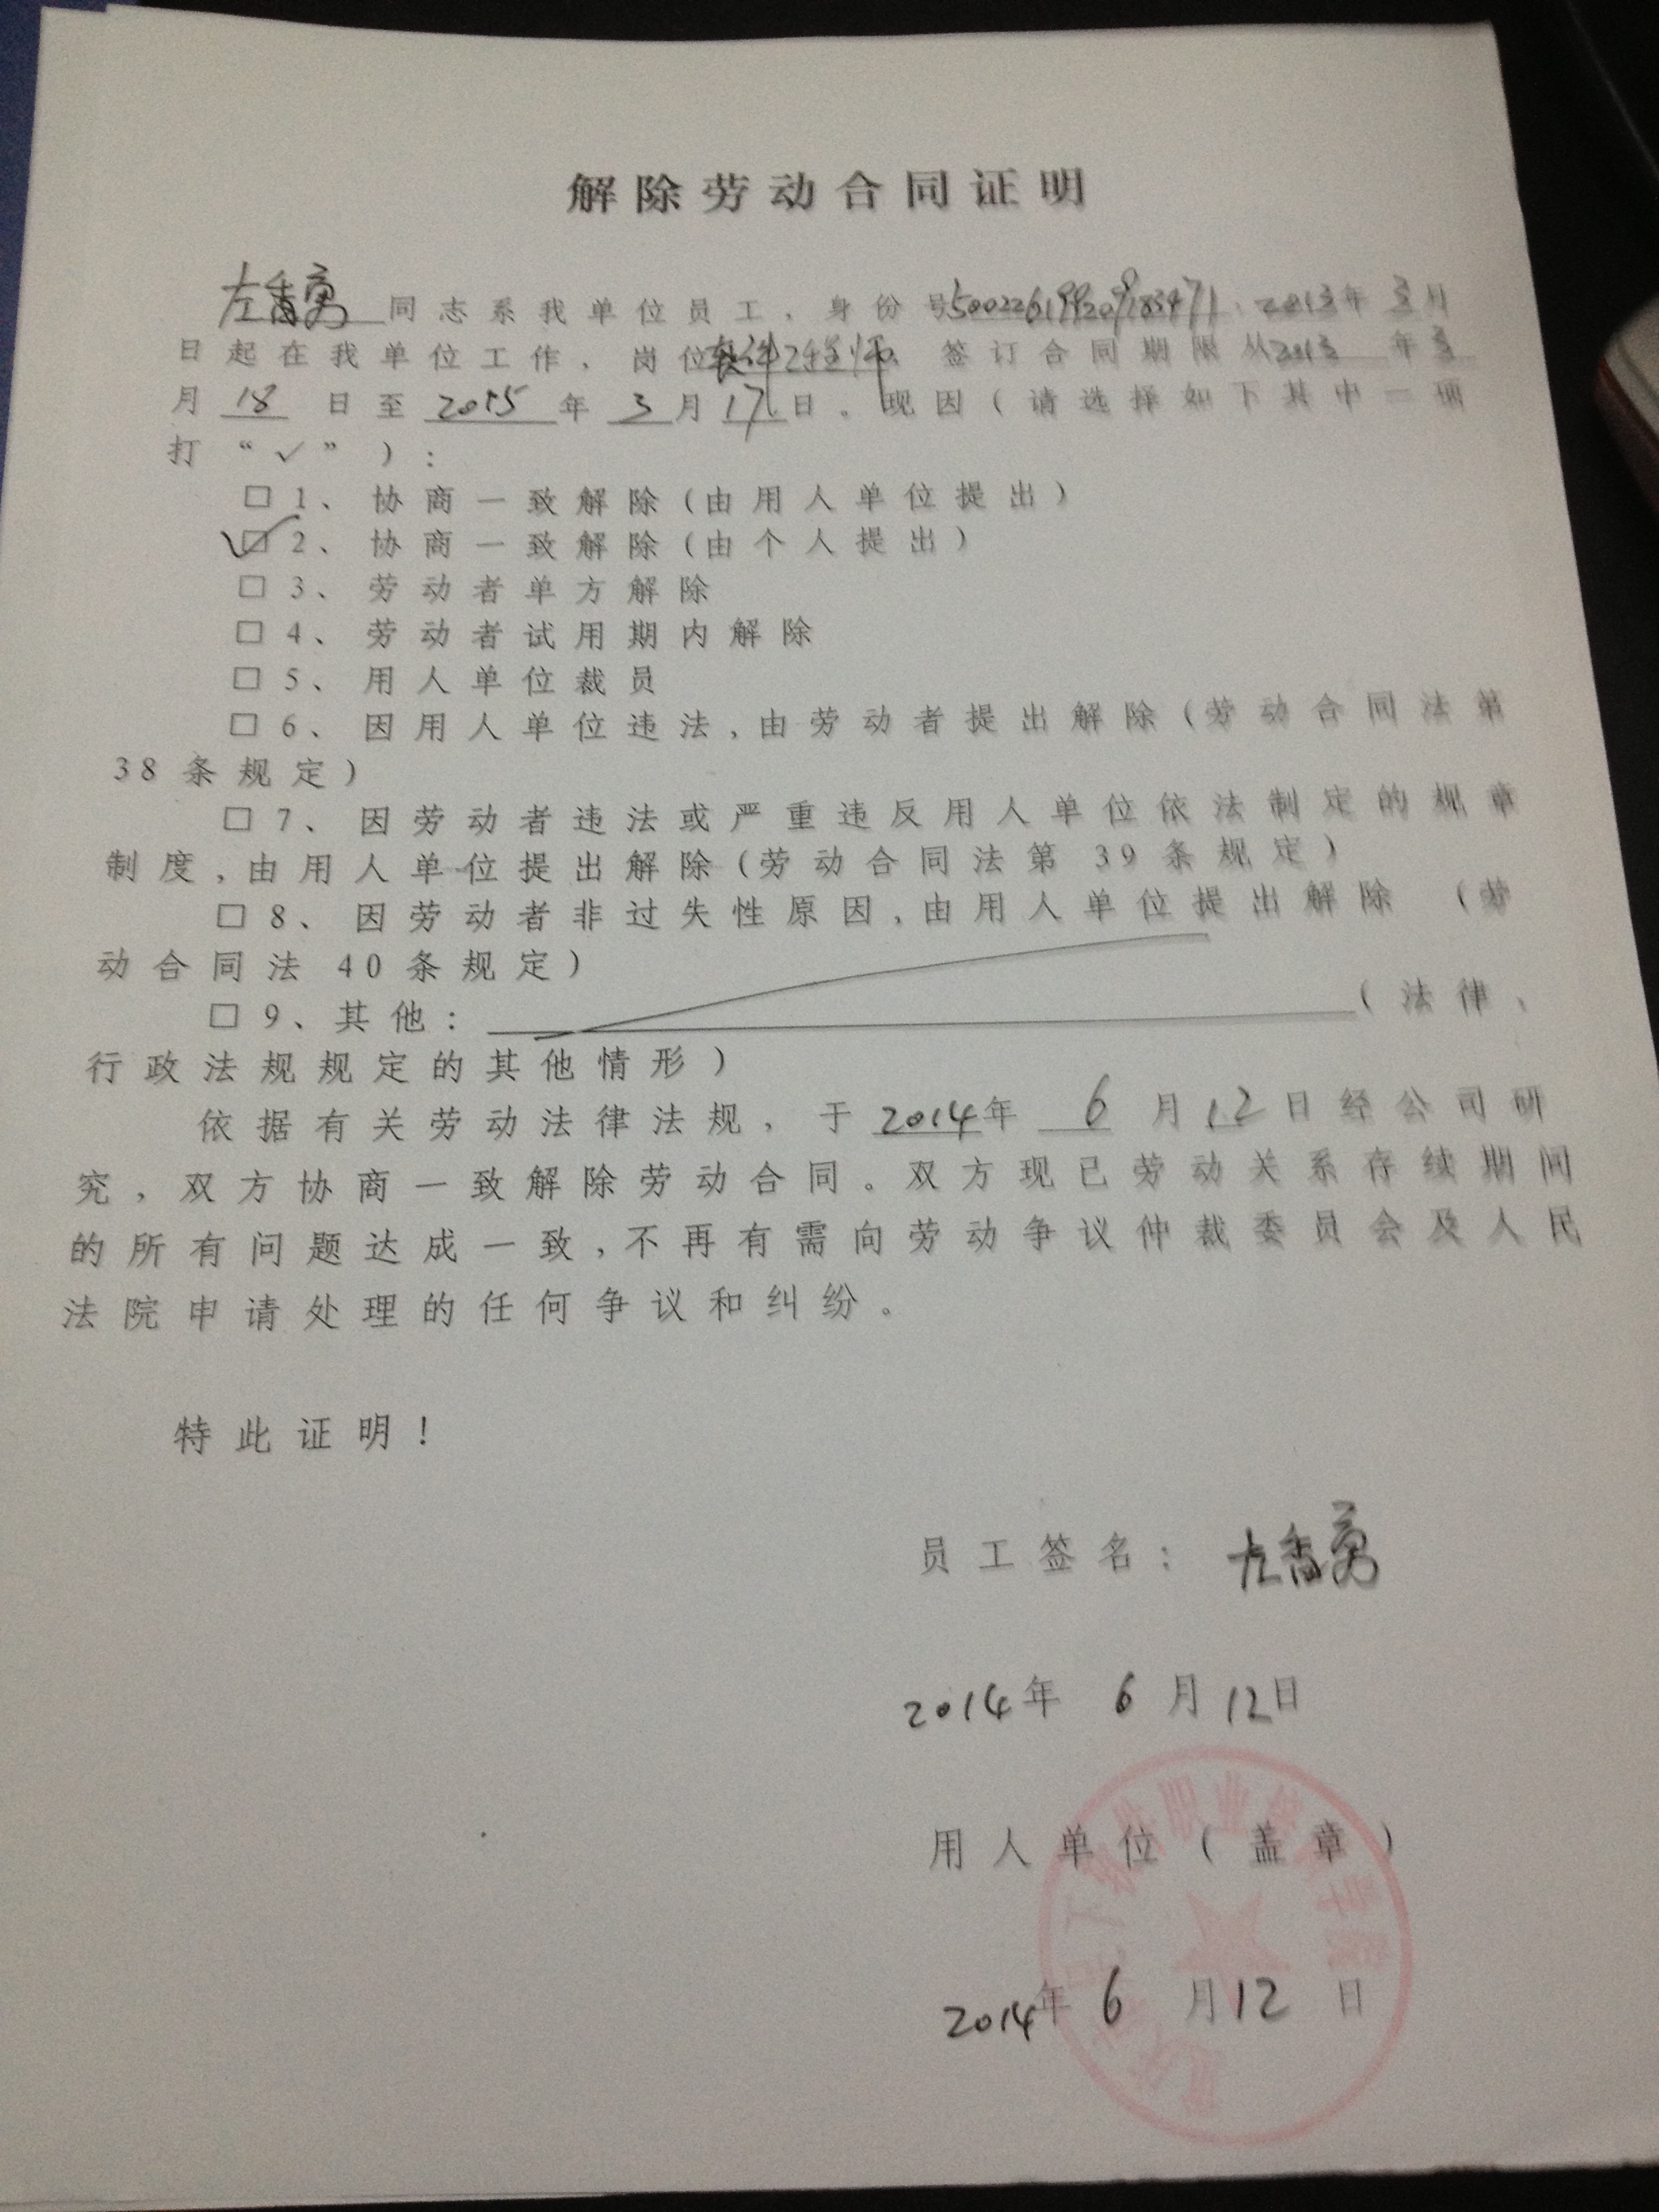 解除劳动合同证明
同志系我单位员工，身份号 ，2013年3月
日起在我单位工作，岗位 签订合同期限从2013年3
月18日至2015年3月17日。现因（请选择如下其中一项
打“√”）：
□1、协商一致解除（由用人单位提出）
☑2、协商一致解除（由个人提出）
□3、劳动者单方解除
□4、劳动者试用期内解除
□5、用人单位裁员
□6、因用人单位违法，由劳动者提出解除（劳动合同法第
38条规定）
□7、因劳动者违法或严重违反用人单位依法制定的规章
制度，由用人单位提出解除（劳动合同法第39条规定）
□8、因劳动者非过失性原因，由用人单位提出解除（劳
动合同法40条规定）
□9、其他：（法律、
行政法规规定的其他情形）
依据有关劳动法律法规，于2014年6月12日经公司研
究，双方协商一致解除劳动合同。双方现已劳动关系存续期间
的所有问题达成一致，不再有需向劳动争议仲裁委员会及人民
法院申请处理的任何争议和纠纷。
特此证明！
员工签名：
2014年6月12日
用人单位（盖章）
2014年6月12日